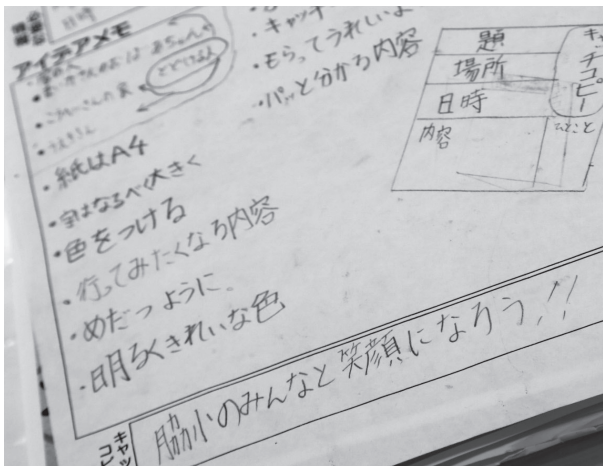 日時
アイデアメモ
とどいてる人
・紙はA4
・字はなるべく大きく
・色をつける
・行ってみたくなる内容
・めだつように。
・明るくきれいな色
・もらってうれしいよ
・パッと分かる内容
題
場所
日時
内容
キャッチコピー
ひとこと
キャッ
コピ
脇小のみんなと笑顔になろう!!